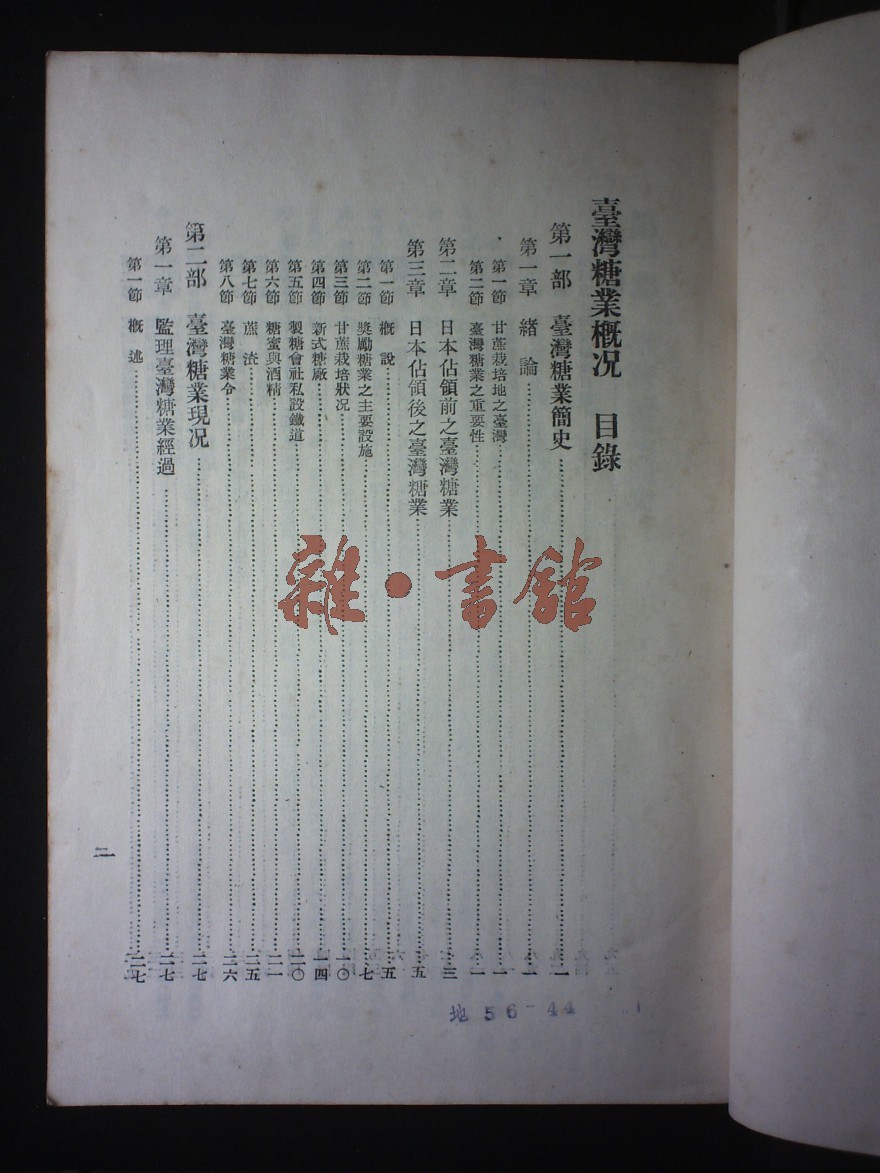 臺灣糖業概況　目錄
第一部　臺灣糖業簡史……一
第一章　緒　論……一
第一節　甘蔗栽培地之臺灣……一
第二節　臺灣糖業之重要性……一
第二章　日本佔領前之臺灣糖業……三
第三章　日本佔領後之臺灣糖業……五
第一節　概　說……五
第二節　奬勵糖業之主要設施……七
第三節　甘蔗栽培狀況……一〇
第四節　新式糖廠……一四
第五節　製糖會社私設鐵道……二〇
第六節　糖蜜與酒精……二一
第七節　蔗　渣……二五
第八節　臺灣糖業令……二六
第二部　臺灣糖業現況……二七
第一章　監理臺灣糖業經過……二七
第一節　概　述……二七
二
雜·書館
地 56-44